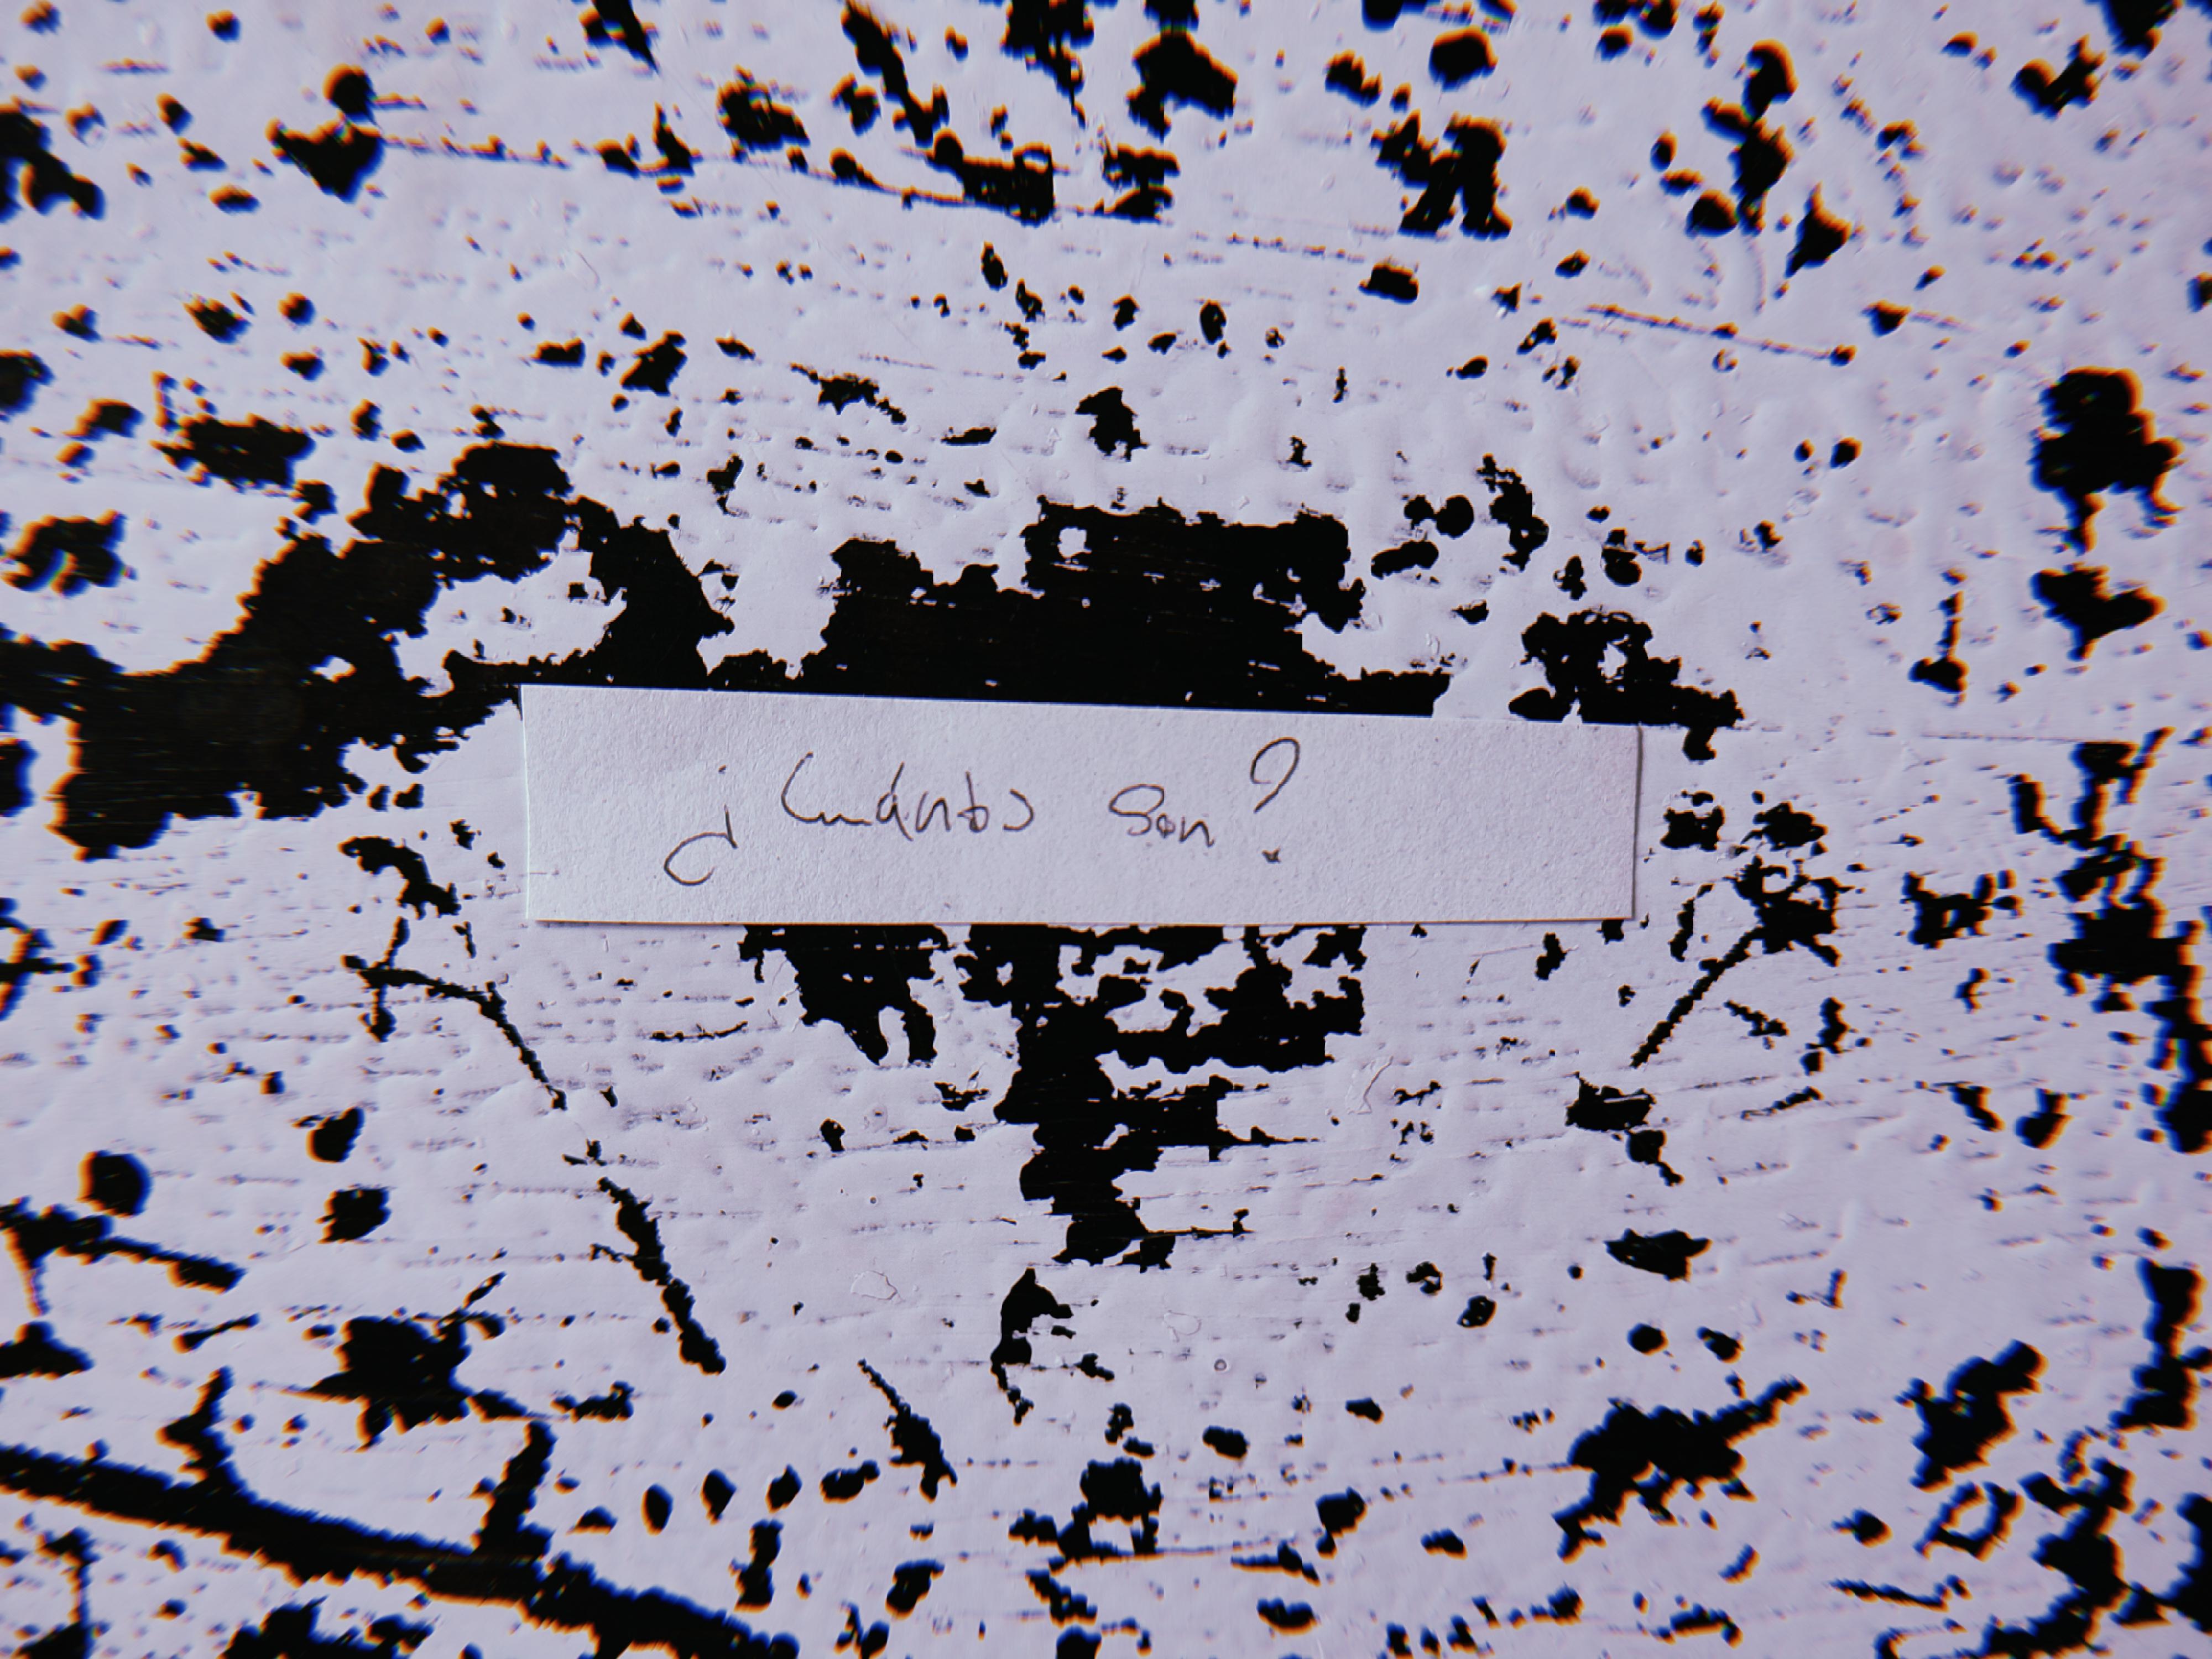 ¿Cuántos son?